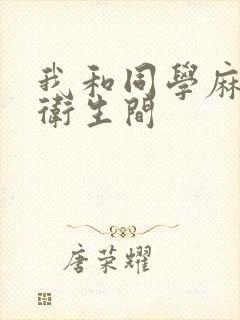 我和同學麻
衛生間
唐荣耀